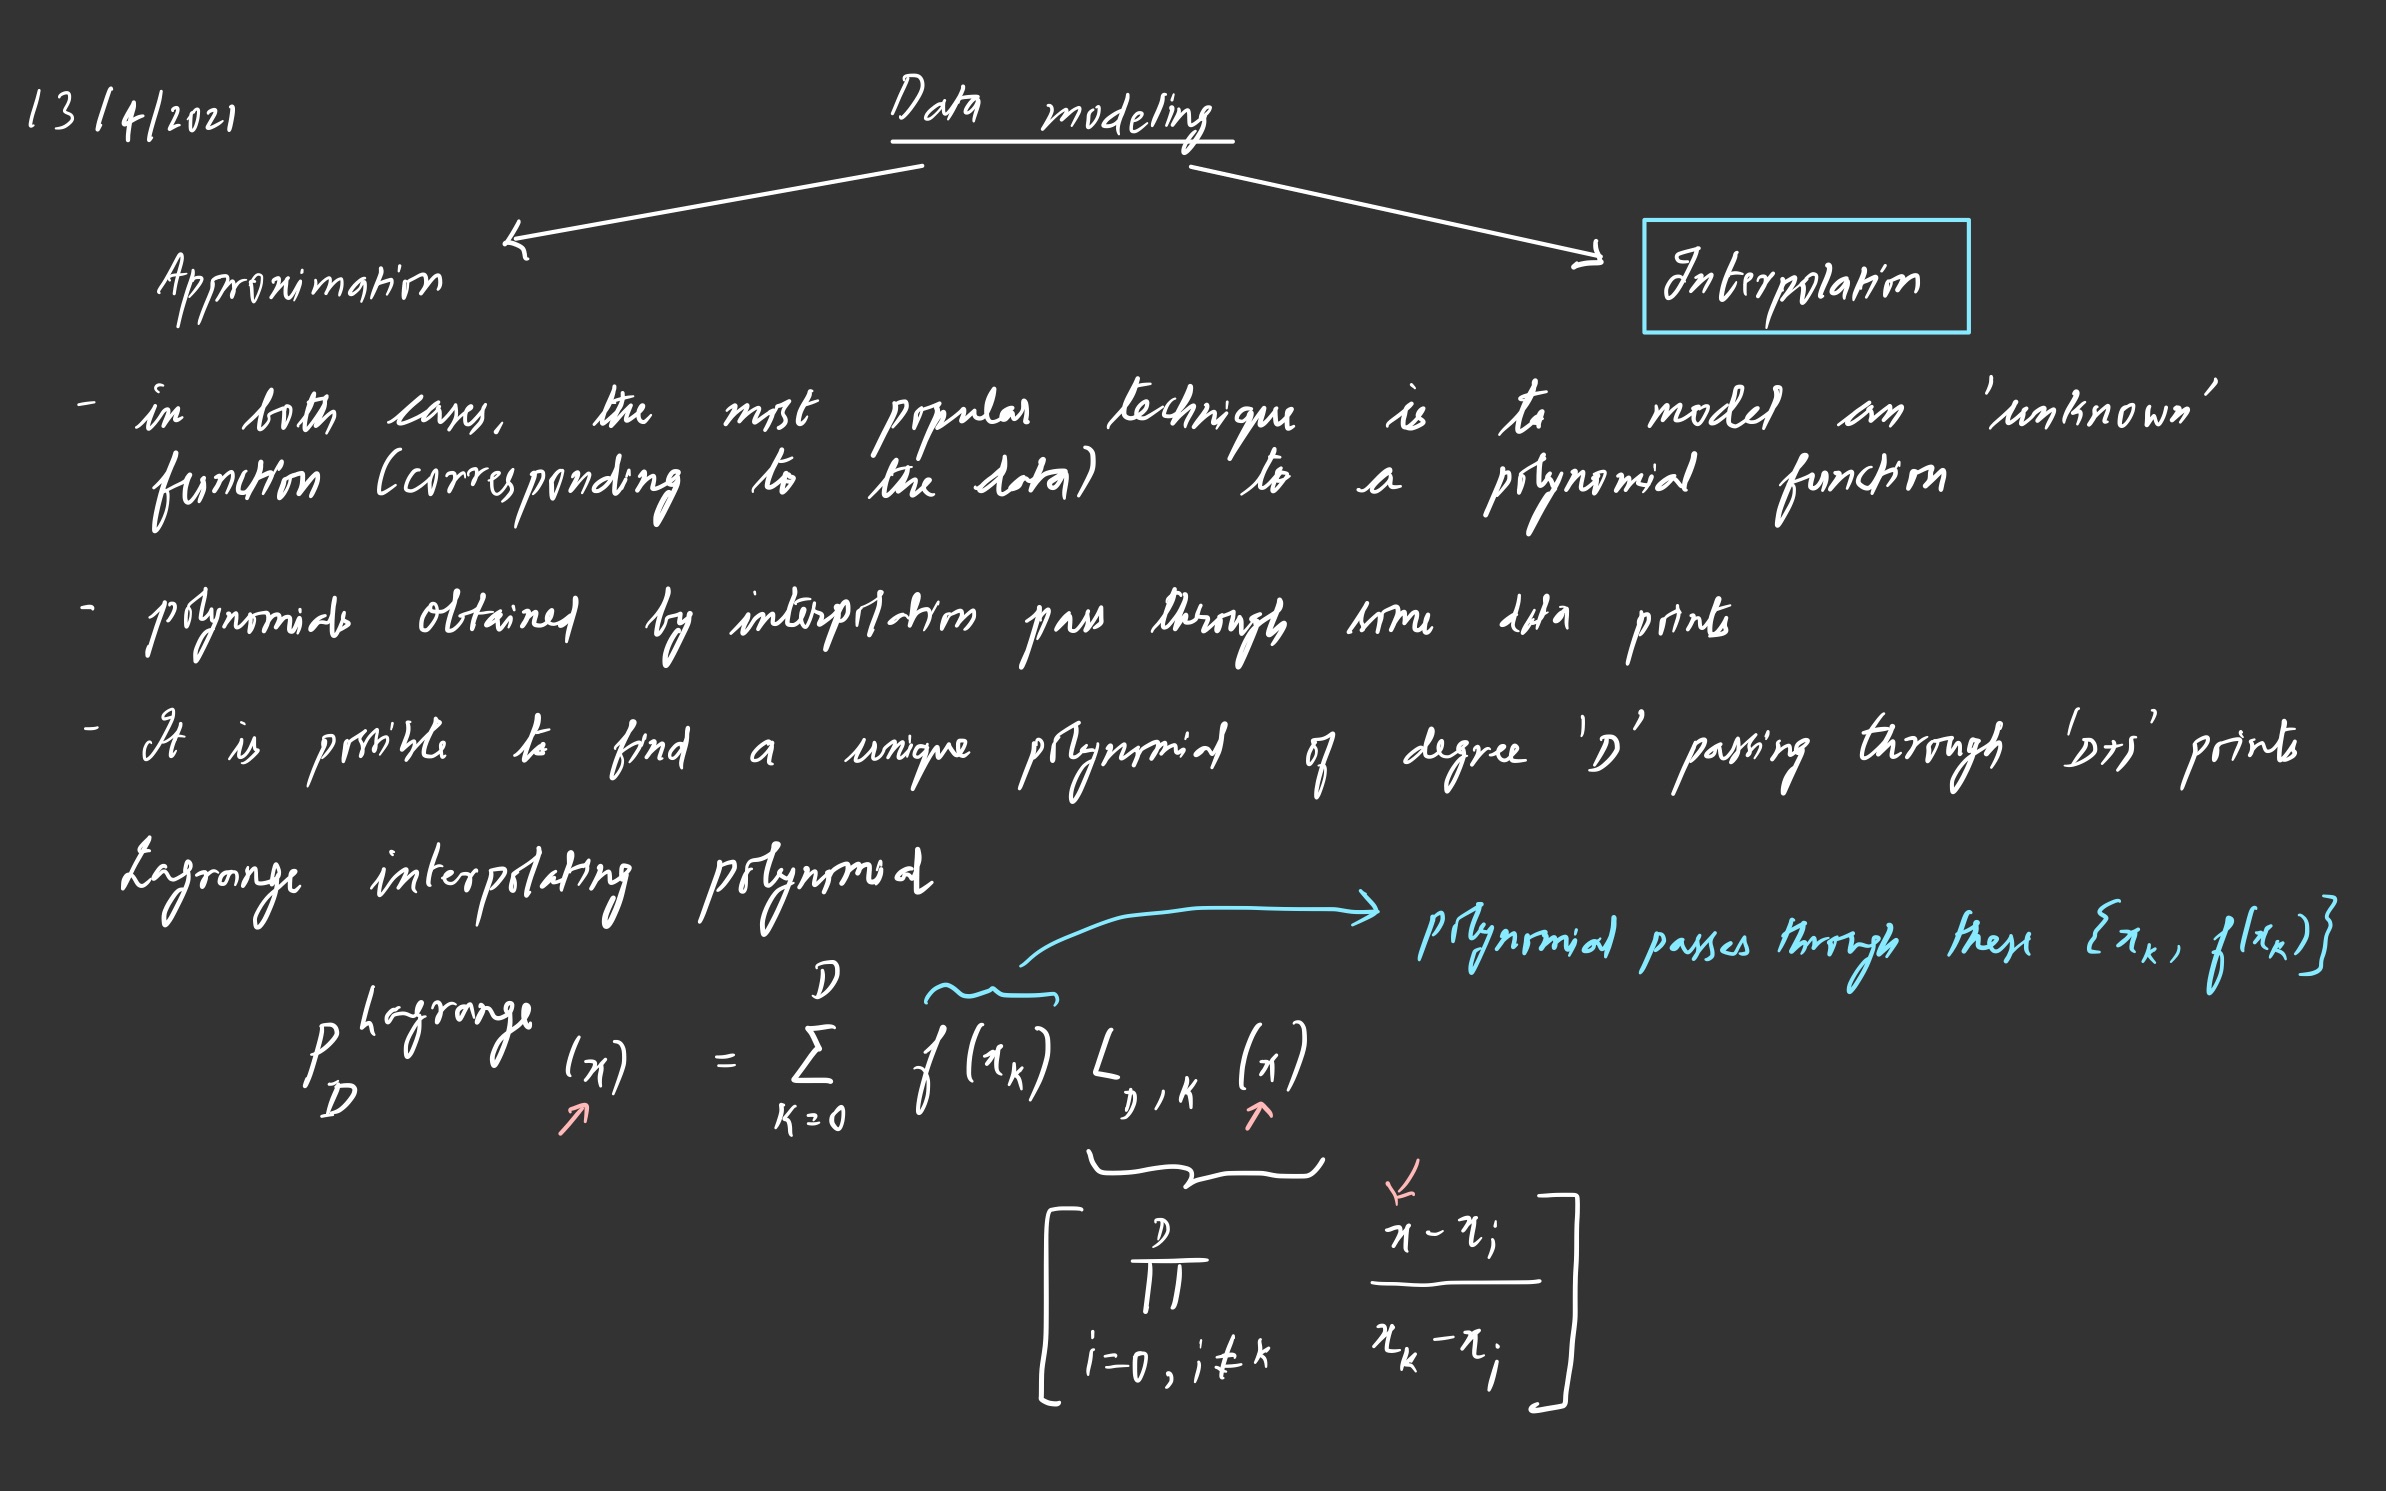 13/4/2021
Data modeling
Approximation
Interpolation
- in both cases, the most popular technique is to model an 'unknown'
function (corresponding to the data) to a polynomial function
- polynomials obtained by interpolation pass through some data points
- It is possible to find a unique polynomial of degree 'D' passing through 'D+1' points
Lagrange interpolating polynomial
polynomial passes through these {x_k, f(x_k)}
P_D^Lagrange (x) = ∑_{k=0}^{D} f(x_k) L_{D,k} (x)
[ ∏_{i=0, i≠k}^{D} (x - x_i) / (x_k - x_i) ]